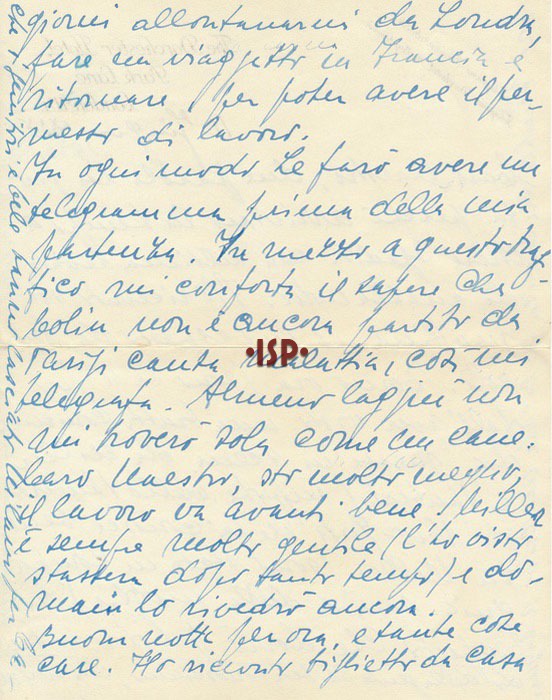 giorni allontanarmi da Londra,
fare un viaggetto in Francia e
ritornare, per poter avere il per-
messo di lavoro.
In ogni modo Le farò avere un
telegramma prima della mia
partenza. In mezzo a questo traf-
fico mi conforta il sapere che
bolin non è ancora partito da
Parigi causa malattia, così mi
telegrafa. Almeno laggiù non
mi troverò sola come un cane.
Caro Maestro, sto molto meglio,
il lavoro va avanti bene. Hiller
è sempre molto gentile (l'ho visto
stassera dopo tanto tempo) e do-
mani lo rivedrò ancora.
Buona notte per ora, e tante cose
care. Ho ricevuto biglietto da casa
che i hanno lasciato Milano per
·ISP·